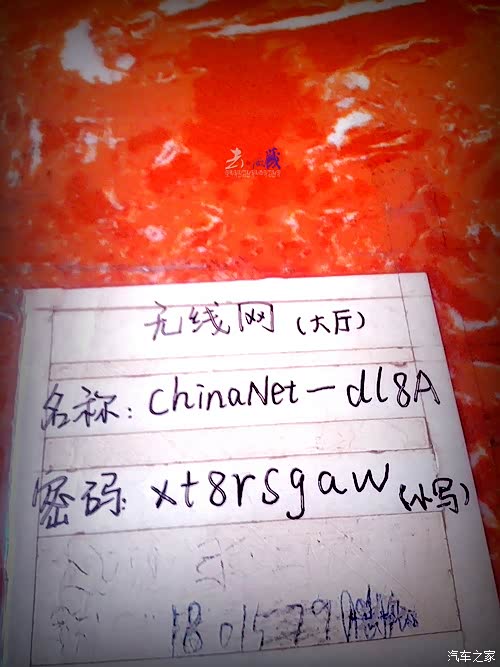 无线网（大厅）
名称：ChinaNet－dl8A
密码：xt8rsgaw（小写）
1801579
汽车之家